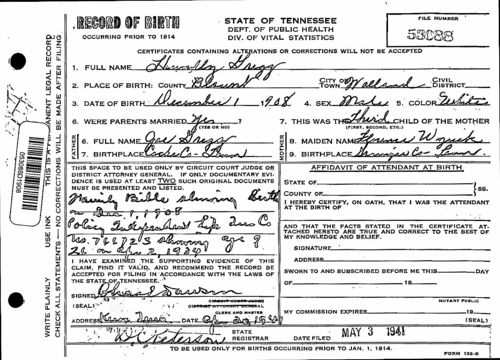 RECORD OF BIRTH
OCCURRING PRIOR TO 1914
STATE OF TENNESSEE
DEPT. OF PUBLIC HEALTH
DIV. OF VITAL STATISTICS
FILE NUMBER
53088
CERTIFICATES CONTAINING ALTERATIONS OR CORRECTIONS WILL NOT BE ACCEPTED
1. FULL NAME Gregg
2. PLACE OF BIRTH: COUNTY Blount CITY OR TOWN Walland CIVIL DISTRICT
3. DATE OF BIRTH December 1 1908 4. SEX Male 5. COLOR White
6. WERE PARENTS MARRIED Yes (YES OR NO) 7. THIS WAS THE Third CHILD OF THE MOTHER
(FIRST, SECOND, ETC.)
FATHER
6. FULL NAME Joe Gregg
7. BIRTHPLACE Cocke Co - Tenn
MOTHER
8. MAIDEN NAME
9. BIRTHPLACE Co - Tenn
THIS SPACE TO BE USED ONLY BY CIRCUIT COURT JUDGE OR
DISTRICT ATTORNEY GENERAL. IF ONLY DOCUMENTARY EVI-
DENCE IS USED AT LEAST TWO SUCH ORIGINAL DOCUMENTS
MUST BE PRESENTED AND LISTED.
Family Bible showing Birth
on Dec 1, 1908
Policy Independent Life Ins Co
No. showing age of
I HAVE EXAMINED THE SUPPORTING EVIDENCE OF THIS
CLAIM, FIND IT VALID, AND RECOMMEND THE RECORD BE
ACCEPTED FOR FILING IN ACCORDANCE WITH THE LAWS OF
THE STATE OF TENNESSEE.
SIGNED
CIRCUIT COURT JUDGE
(SEAL) DISTRICT ATTORNEY GENERAL
CLERK AND MASTER
ADDRESS DATE
AFFIDAVIT OF ATTENDANT AT BIRTH
STATE OF
COUNTY OF
SS.
I HEREBY CERTIFY, ON OATH, THAT I WAS THE ATTENDANT
AT THE BIRTH OF
AND THAT THE FACTS STATED IN THE CERTIFICATE AT-
TACHED HERETO ARE TRUE AND CORRECT TO THE BEST OF
MY KNOWLEDGE AND BELIEF.
SIGNATURE
ADDRESS
SWORN TO AND SUBSCRIBED BEFORE ME THIS DAY
OF 19
NOTARY PUBLIC
MY COMMISSION EXPIRES 19
(SEAL)
STATE REGISTRAR DATE FILED MAY 3 1941
TO BE USED ONLY FOR BIRTHS OCCURRING PRIOR TO JAN. 1, 1914.
WRITE PLAINLY USE INK THIS IS A PERMANENT LEGAL RECORD
CHECK ALL STATEMENTS — NO CORRECTIONS WILL BE MADE AFTER FILING